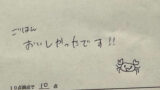 ごはん
おいしかったです!!
10点満点で 10 点